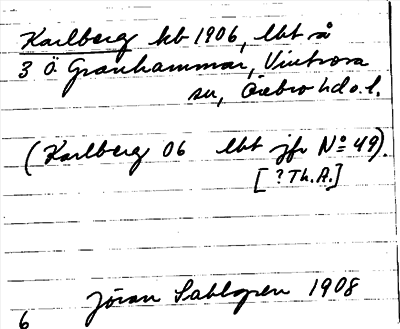 Karlberg kb 1906, lht å
3 Ö. Granhammar, Vintrosa
sn, Örebro hd o. l.
(Karlberg 06 lht jfr No 49).
[?Th.A.]
Jöran Sahlgren 1908
6